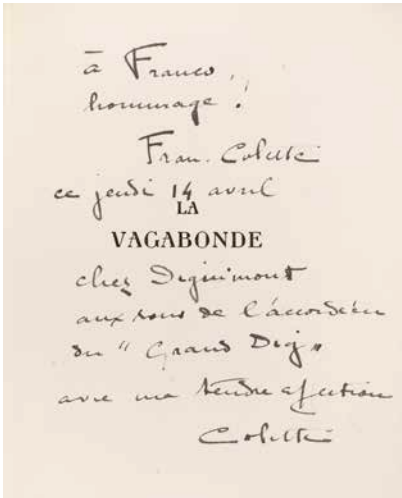 à Franco,
hommage !
Fran. Colette
ce jeudi 14 avril
LA
VAGABONDE
chez Diguimont
aux sons de l'accordéon
du "Grand Dig"
avec ma tendre affection
Colette